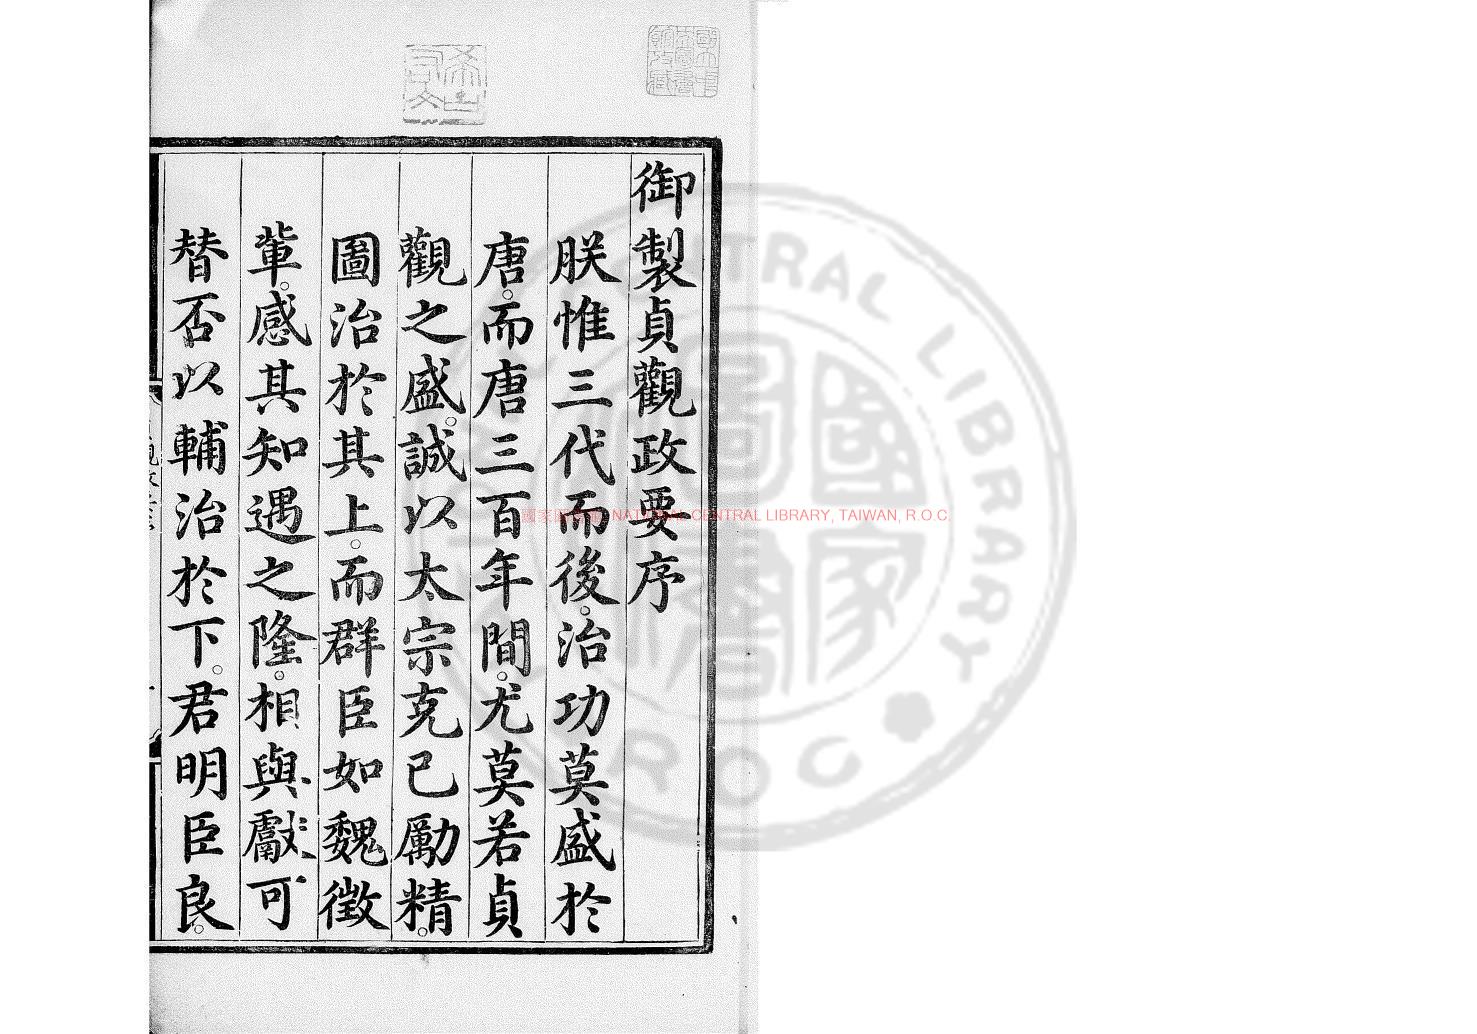 御製貞觀政要序
朕惟三代而後。治功莫盛於
唐。而唐三百年間。尤莫若貞
觀之盛。誠以太宗克己勵精。
圖治於其上。而群臣如魏徵
輩。感其知遇之隆。相與獻可
替否以輔治於下。君明臣良。
NATIONAL CENTRAL LIBRARY, TAIWAN, R.O.C.